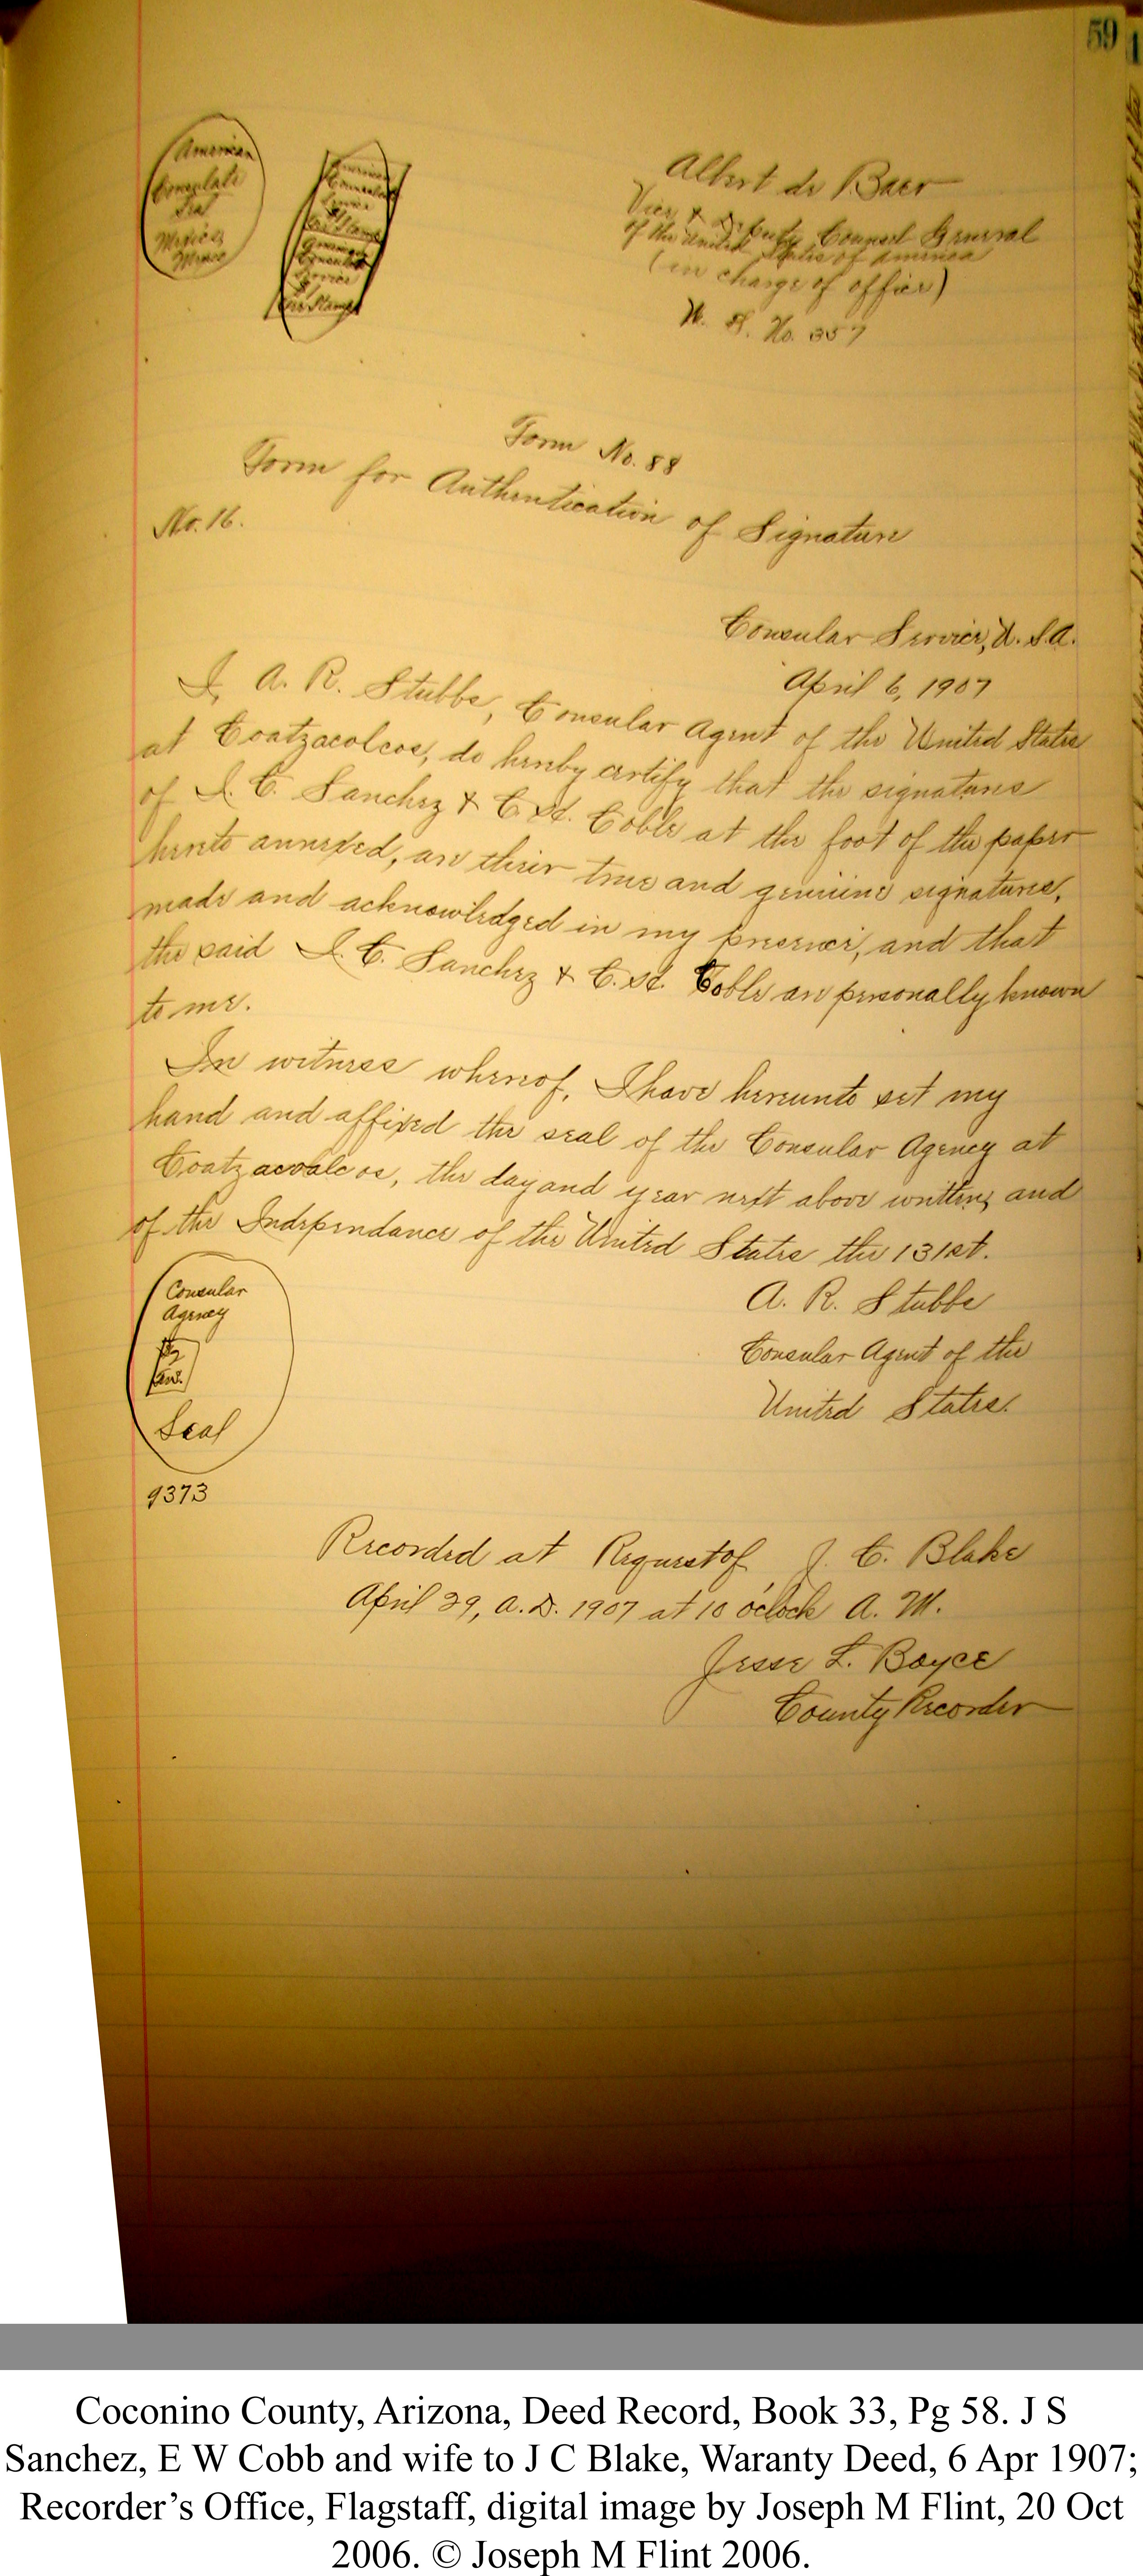 59
American
Consulate
Seal
Mexico,
Mexico
American
Consular
Service
$
Fee Stamp
American
Consular
Service
$
Fee Stamp
Albert de Baer
Vice & Deputy Counsel General
of the United States of America
(in charge of office)
No. 357
Form No. 88
Form for Authentication of Signature
No. 16.
Consular Service, U. S. A.
April 6, 1907
I, A. R. Stubbs, Consular Agent of the United States
at Coatzacolcos, do hereby certify that the signatures
of J. C. Sanchez & C. W. Coble at the foot of the paper
hereto annexed, are their true and genuine signatures,
made and acknowledged in my presence, and that
the said J. C. Sanchez & C. W. Coble are personally known
to me.
In witness whereof, I have hereunto set my
hand and affixed the seal of the Consular Agency at
Coatzacoalcos, the day and year next above written, and
of the Independance of the United States the 131st.
Consular
Agency
Seal
A. R. Stubbs
Consular Agent of the
United States.
9373
Recorded at Request of J. C. Blake
April 29, A.D. 1907 at 10 o'clock A. M.
Jesse L. Boyce
County Recorder
Coconino County, Arizona, Deed Record, Book 33, Pg 58. J S
Sanchez, E W Cobb and wife to J C Blake, Waranty Deed, 6 Apr 1907;
Recorder’s Office, Flagstaff, digital image by Joseph M Flint, 20 Oct
2006. © Joseph M Flint 2006.